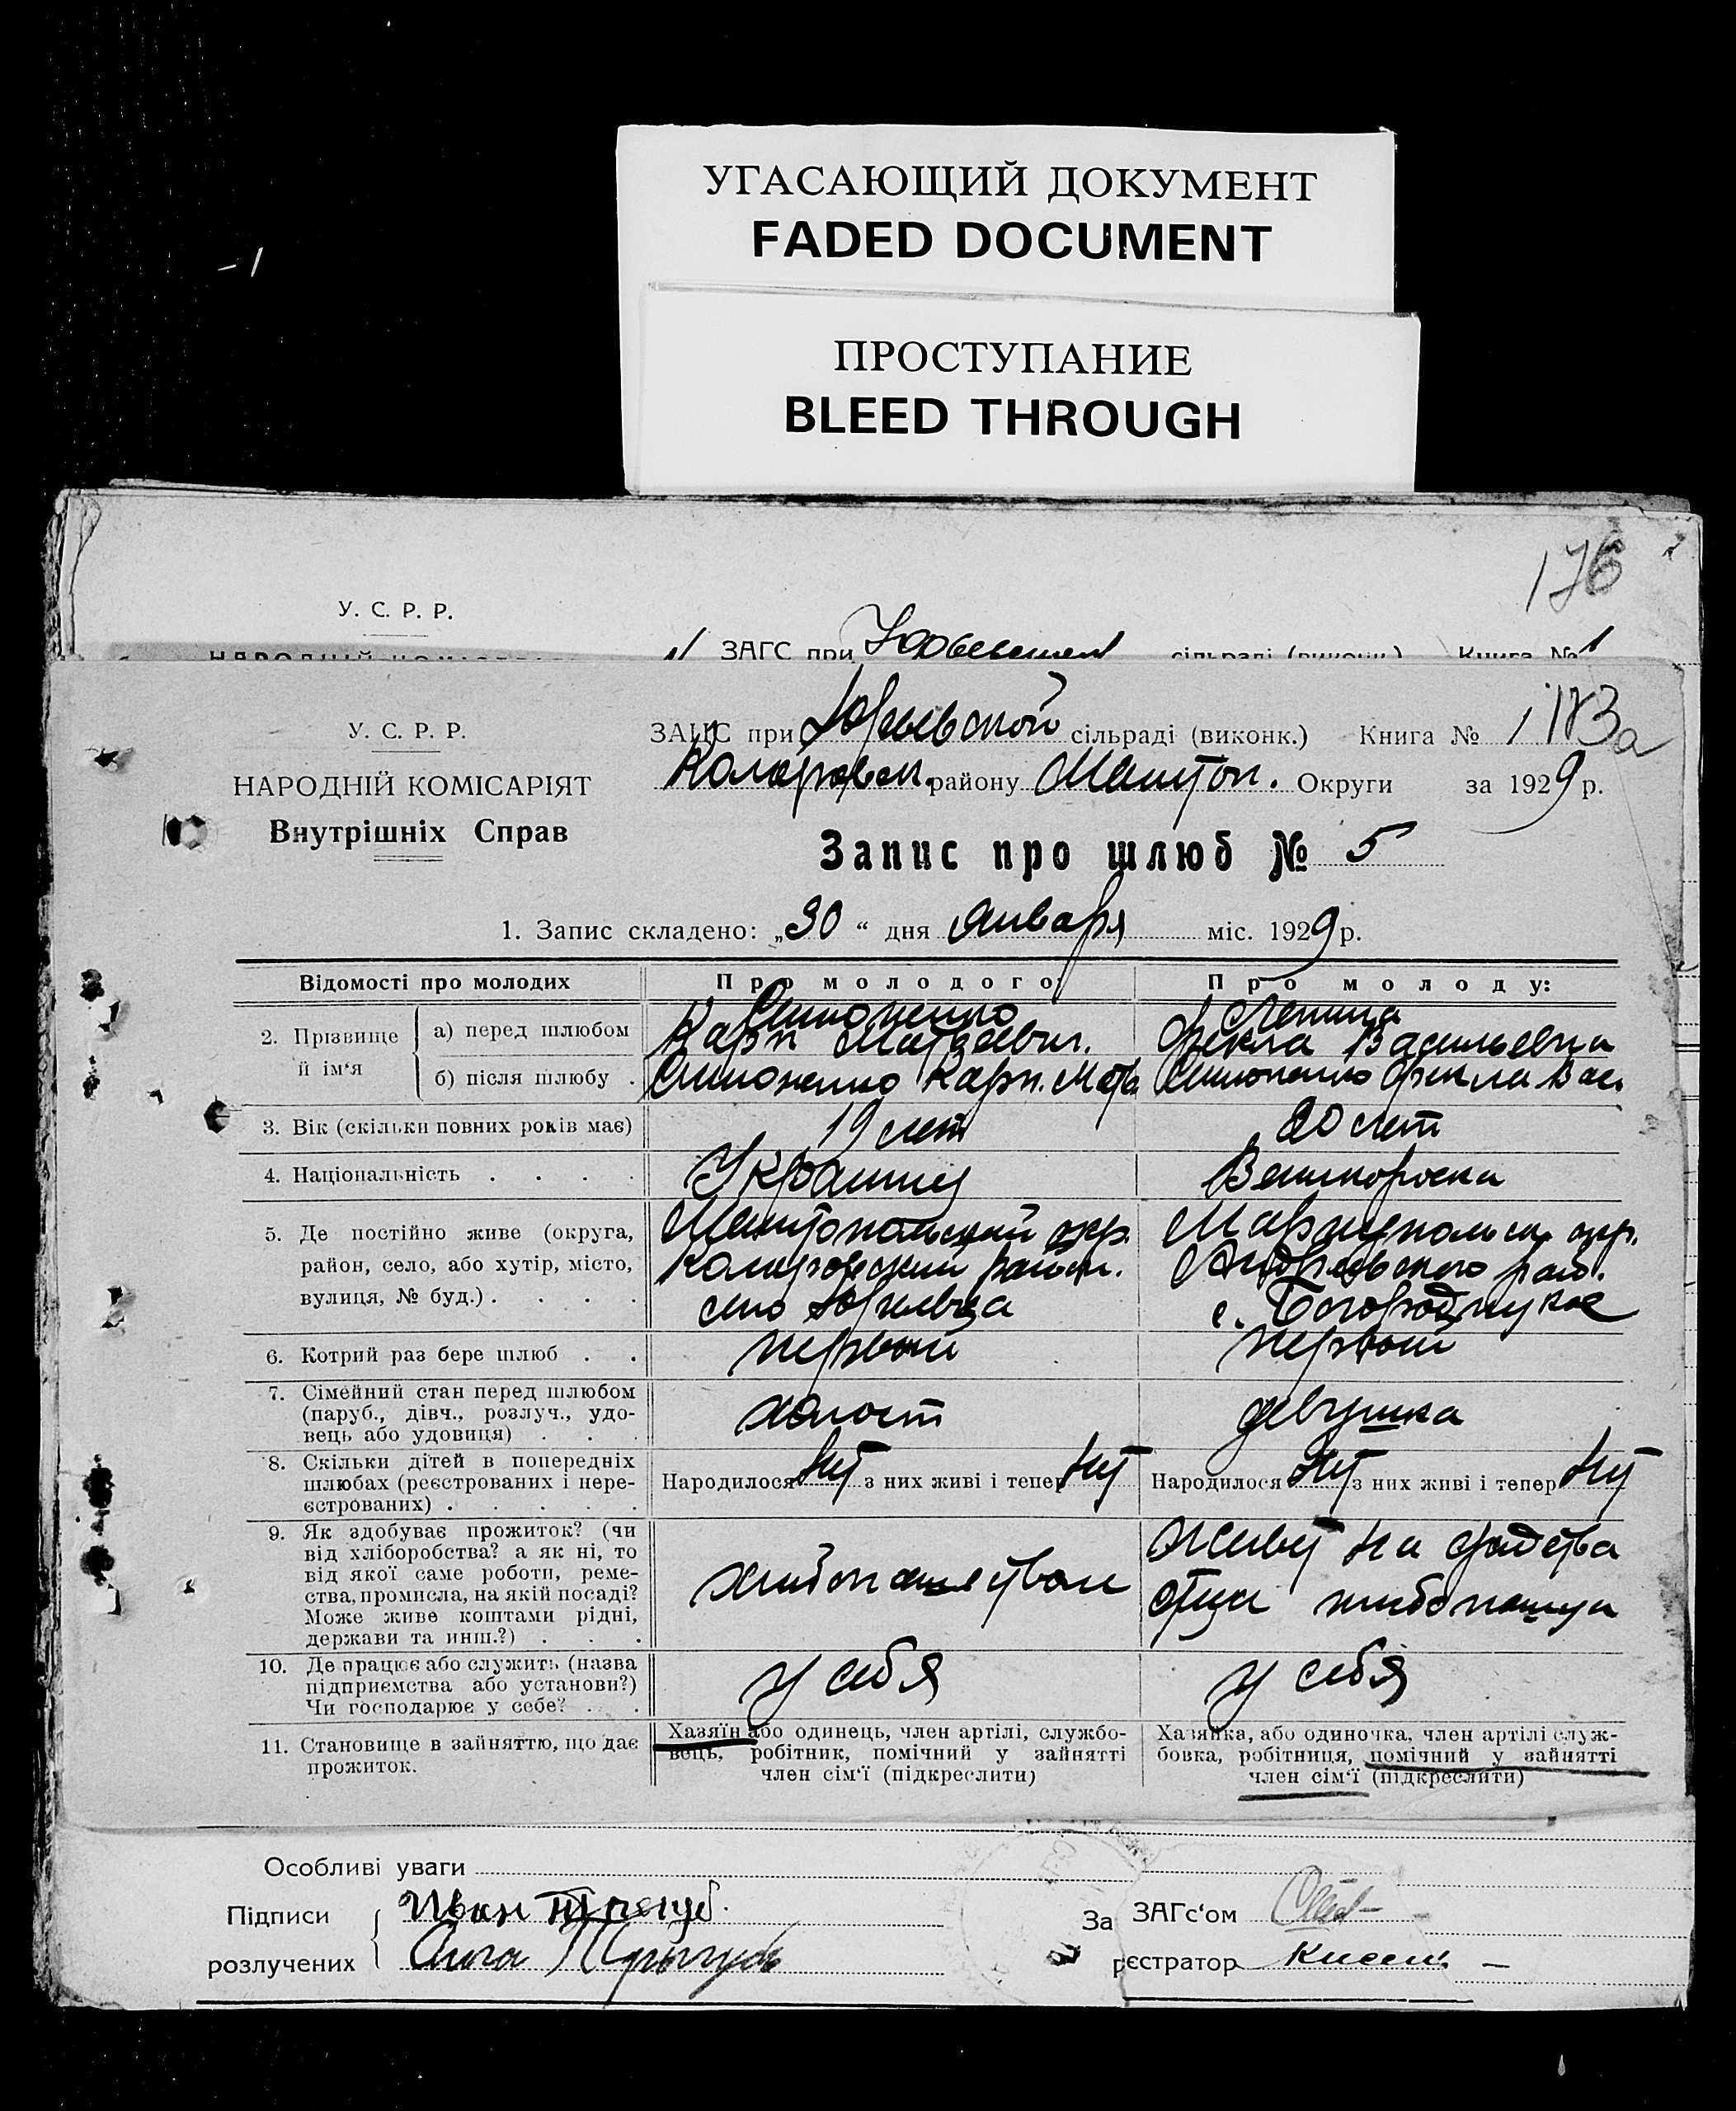 УГАСАЮЩИЙ ДОКУМЕНТ
FADED DOCUMENT
ПРОСТУПАНИЕ
BLEED THROUGH
176
У. С. Р. Р.
ЗАГС при сільраді (виконк.) Книга № 1
У. С. Р. Р.
ЗАГС при Юрьевской сільраді (виконк.) Книга № 1 183а
НАРОДНІЙ КОМІСАРІЯТ
району Мелитоп. Округи за 1929 р.
Внутрішніх Справ
Запис про шлюб № 5
1. Запис складено: „30“ дня Января міс. 1929 р.
Відомості про молодих
Про молодого:
Про молоду:
2. Прізвище й ім‘я
а) перед шлюбом
Симоненко
Карп Матвеевич.
Лепица
Фекла Васильевна
б) після шлюбу .
Симоненко Карп. Матв.
Симоненко Фекла Вас.
3. Вік (скільки повних років має)
19 лет
20 лет
4. Національність . . . .
Украинец
Великороска
5. Де постійно живе (округа,
район, село, або хутір, місто,
вулиця, № буд.) . . . .
Мелитопольский окр.
район.
село Юрьевка
Мариупольск. окр.
Андреевского рай.
с. Богородицкое
6. Котрий раз бере шлюб . .
первый
первый
7. Сімейний стан перед шлюбом
(паруб., дівч., розлуч., удо-
вець або удовиця) . . .
холост
девушка
8. Скільки дітей в попередніх
шлюбах (реєстрованих і нере-
єстрованих) . . . . .
Народилося нет з них живі і тепер нет
Народилося нет з них живі і тепер нет
9. Як здобуває прожиток? (чи
від хліборобства? а як ні, то
від якої саме роботи, реме-
ства, промисла, на якій посаді?
Може живе коштами рідні,
держави та инш.?) . . .
хлебопашеством
живет на средства
отца хлебопашца
10. Де працює або служить (назва
підприємства або установи?)
Чи господарює у себе? . .
у себя
у себя
11. Становище в зайняттю, що дає
прожиток.
Хазяїн або одинець, член артілі, службо-
вець, робітник, помічний у зайнятті
член сім‘ї (підкреслити)
Хазяйка, або одиночка, член артілі служ-
бовка, робітниця, помічний у зайнятті
член сім‘ї (підкреслити)
Особливі уваги
Підписи
розлучених
Иван
За ЗАГс‘ом
реєстратор